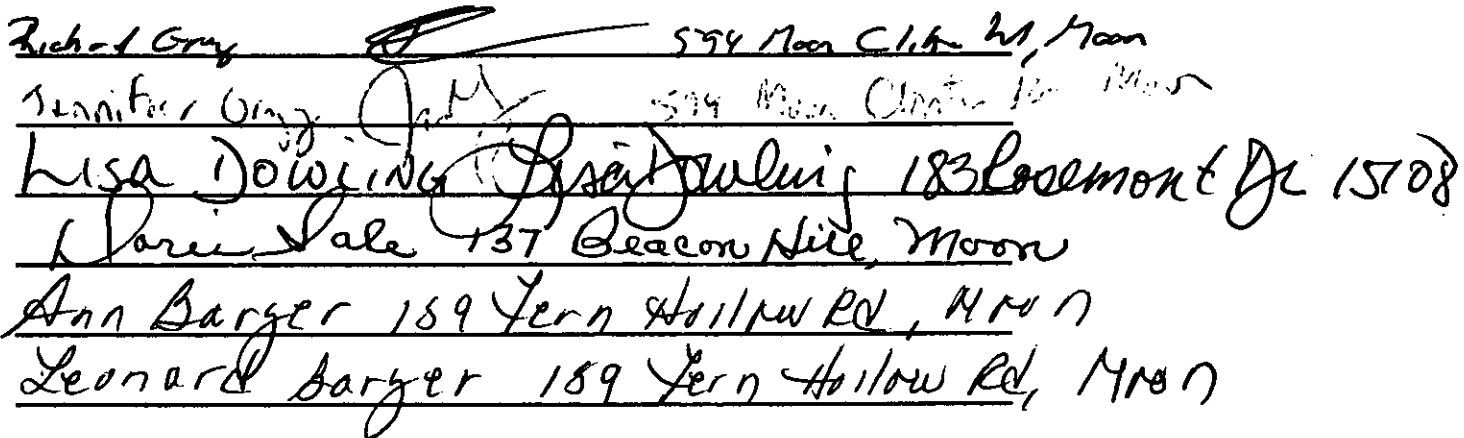 Richard Gray 594 Moon Clinton Rd, Moon
Jennifer Gray 594 Moon Clinton Rd Moon
Lisa Dowling Lisa Dowling 183 Rosemont Dr 15108
Dale 137 Beacon Hill, Moon
Ann Barger 189 Fern Hollow Rd, Moon
Leonard Barger 189 Fern Hollow Rd, Moon